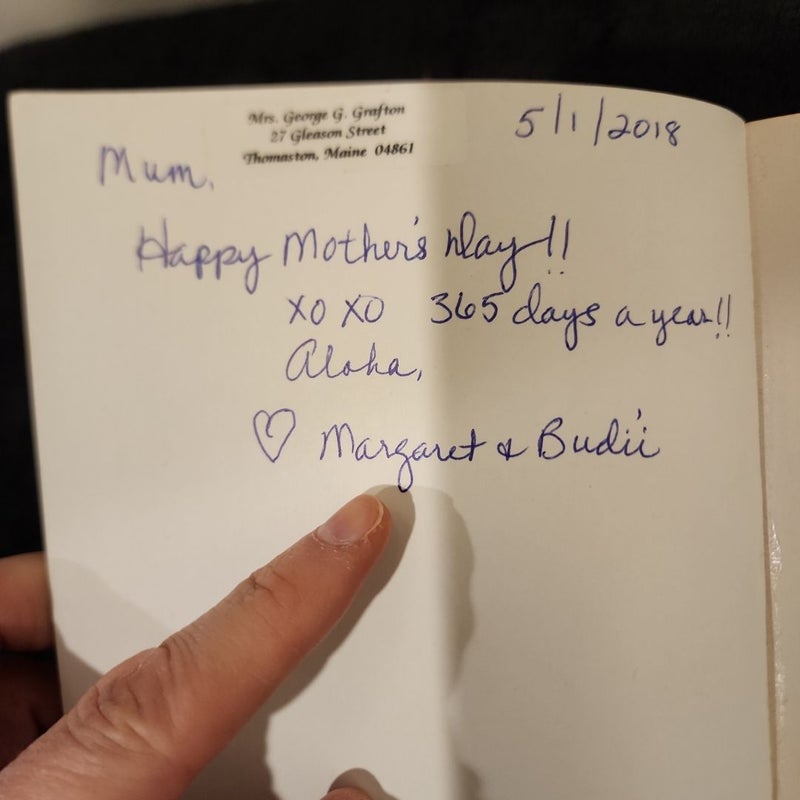 Mrs. George G. Grafton
27 Gleason Street
Thomaston, Maine 04861
5/1/2018
Mum,
Happy Mother's Day!!
XOXO 365 days a year!!
Aloha,
♡ Margaret & Budii